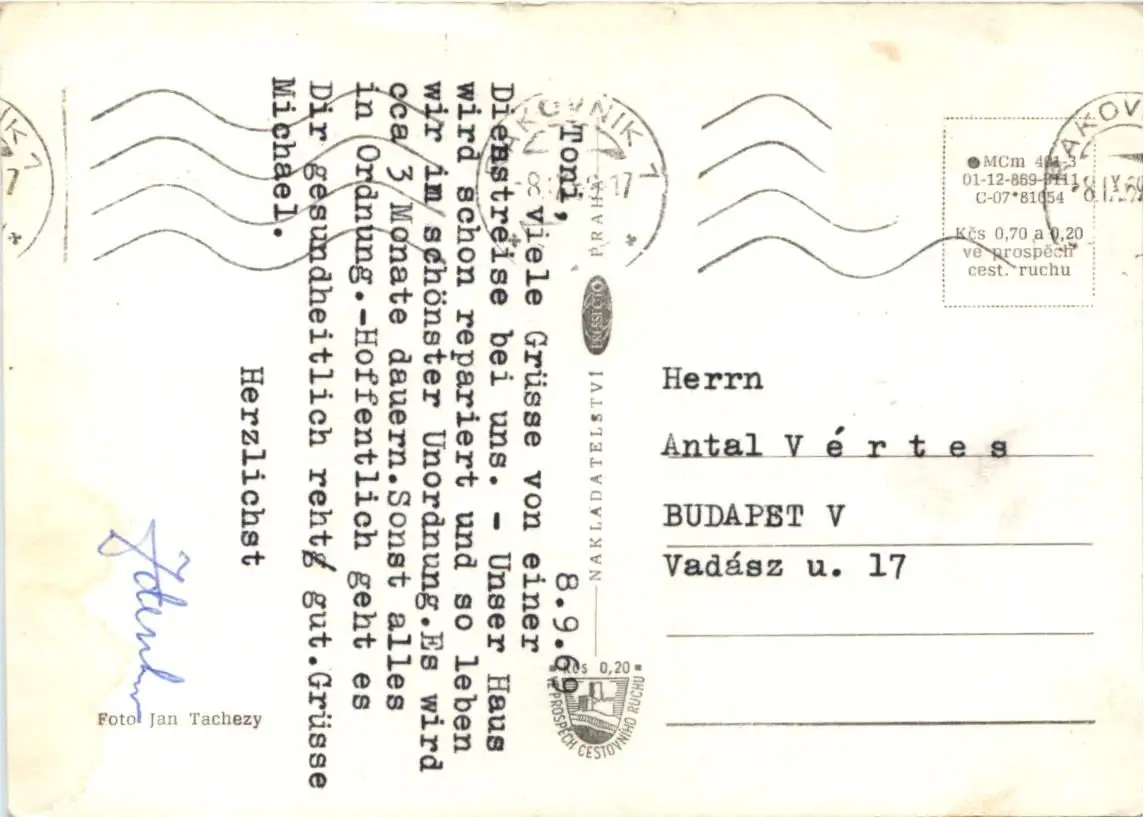 8.9.69
Toni,
viele Grüsse von einer
Dienstreise bei uns. - Unser Haus
wird schon repariert und so leben
wir im schönster Unordnung.Es wird
cca 3 Monate dauern.Sonst alles
in Ordnung.-Hoffentlich geht es
Dir gesundheitlich reht gut.Grüsse
Michael.
Herzlichst
Foto Jan Tachezy
NAKLADATELSTVÍ
PRESSFOTO
PRAHA
Kčs 0,20
VE PROSPĚCH CESTOVNÍHO RUCHU
AKOVNÍK 1
MCm 401-3
01-12-869-3111
C-07*81654
Kčs 0,70 a 0,20
ve prospěch
cest. ruchu
Herrn
Antal V é r t e s
BUDAPET V
Vadász u. 17